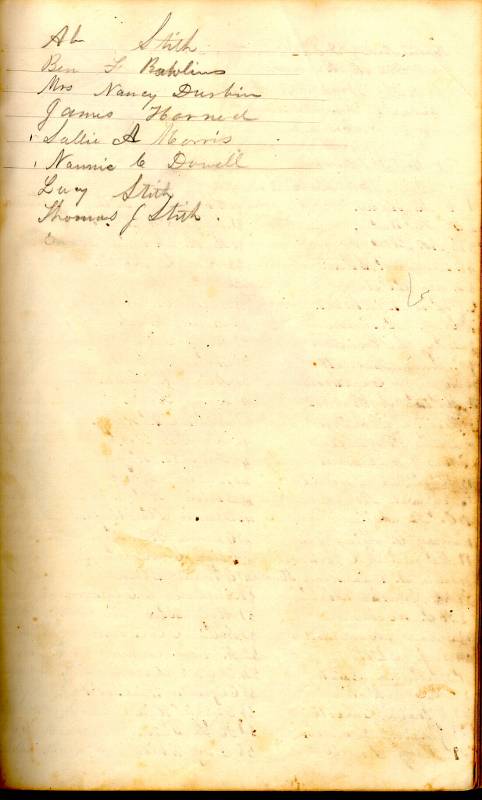 Ab Stith
Ben F Rawlins
Mrs Nancy Durbin
James Horned
Sallie A Morris
Nannie C Dowell
Lucy Stith
Thomas J Stith.